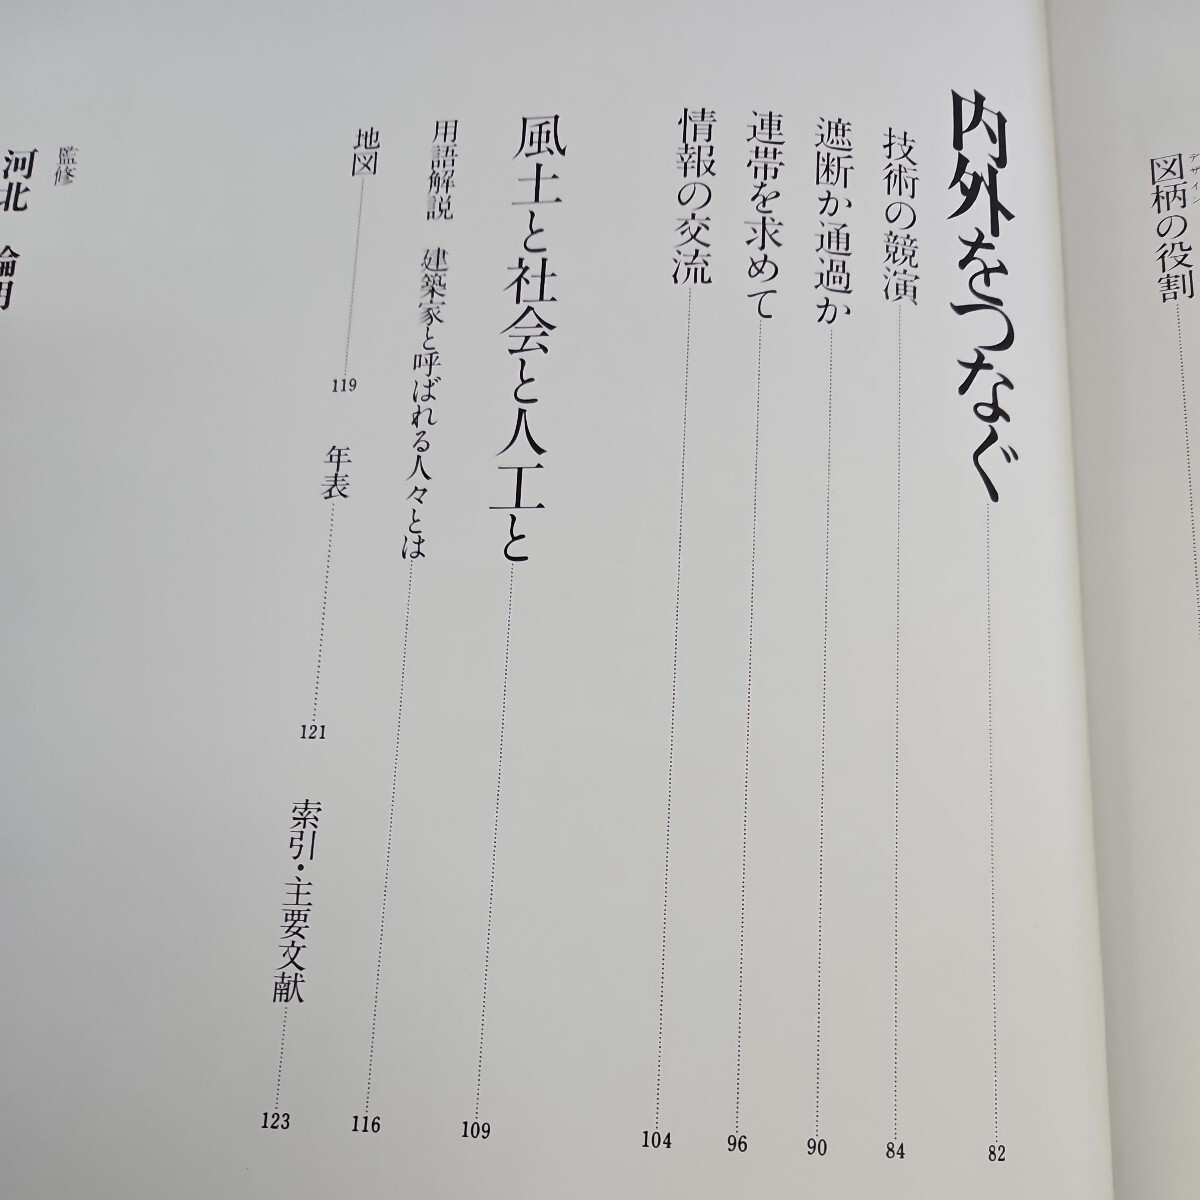 図柄の役割
デザイン
内外をつなぐ 82
技術の競演 84
遮断か通過か 90
連帯を求めて 96
情報の交流 104
風土と社会と人工と 109
用語解説 建築家と呼ばれる人々とは 116
地図 119
年表 121
索引・主要文献 123
監修
河北